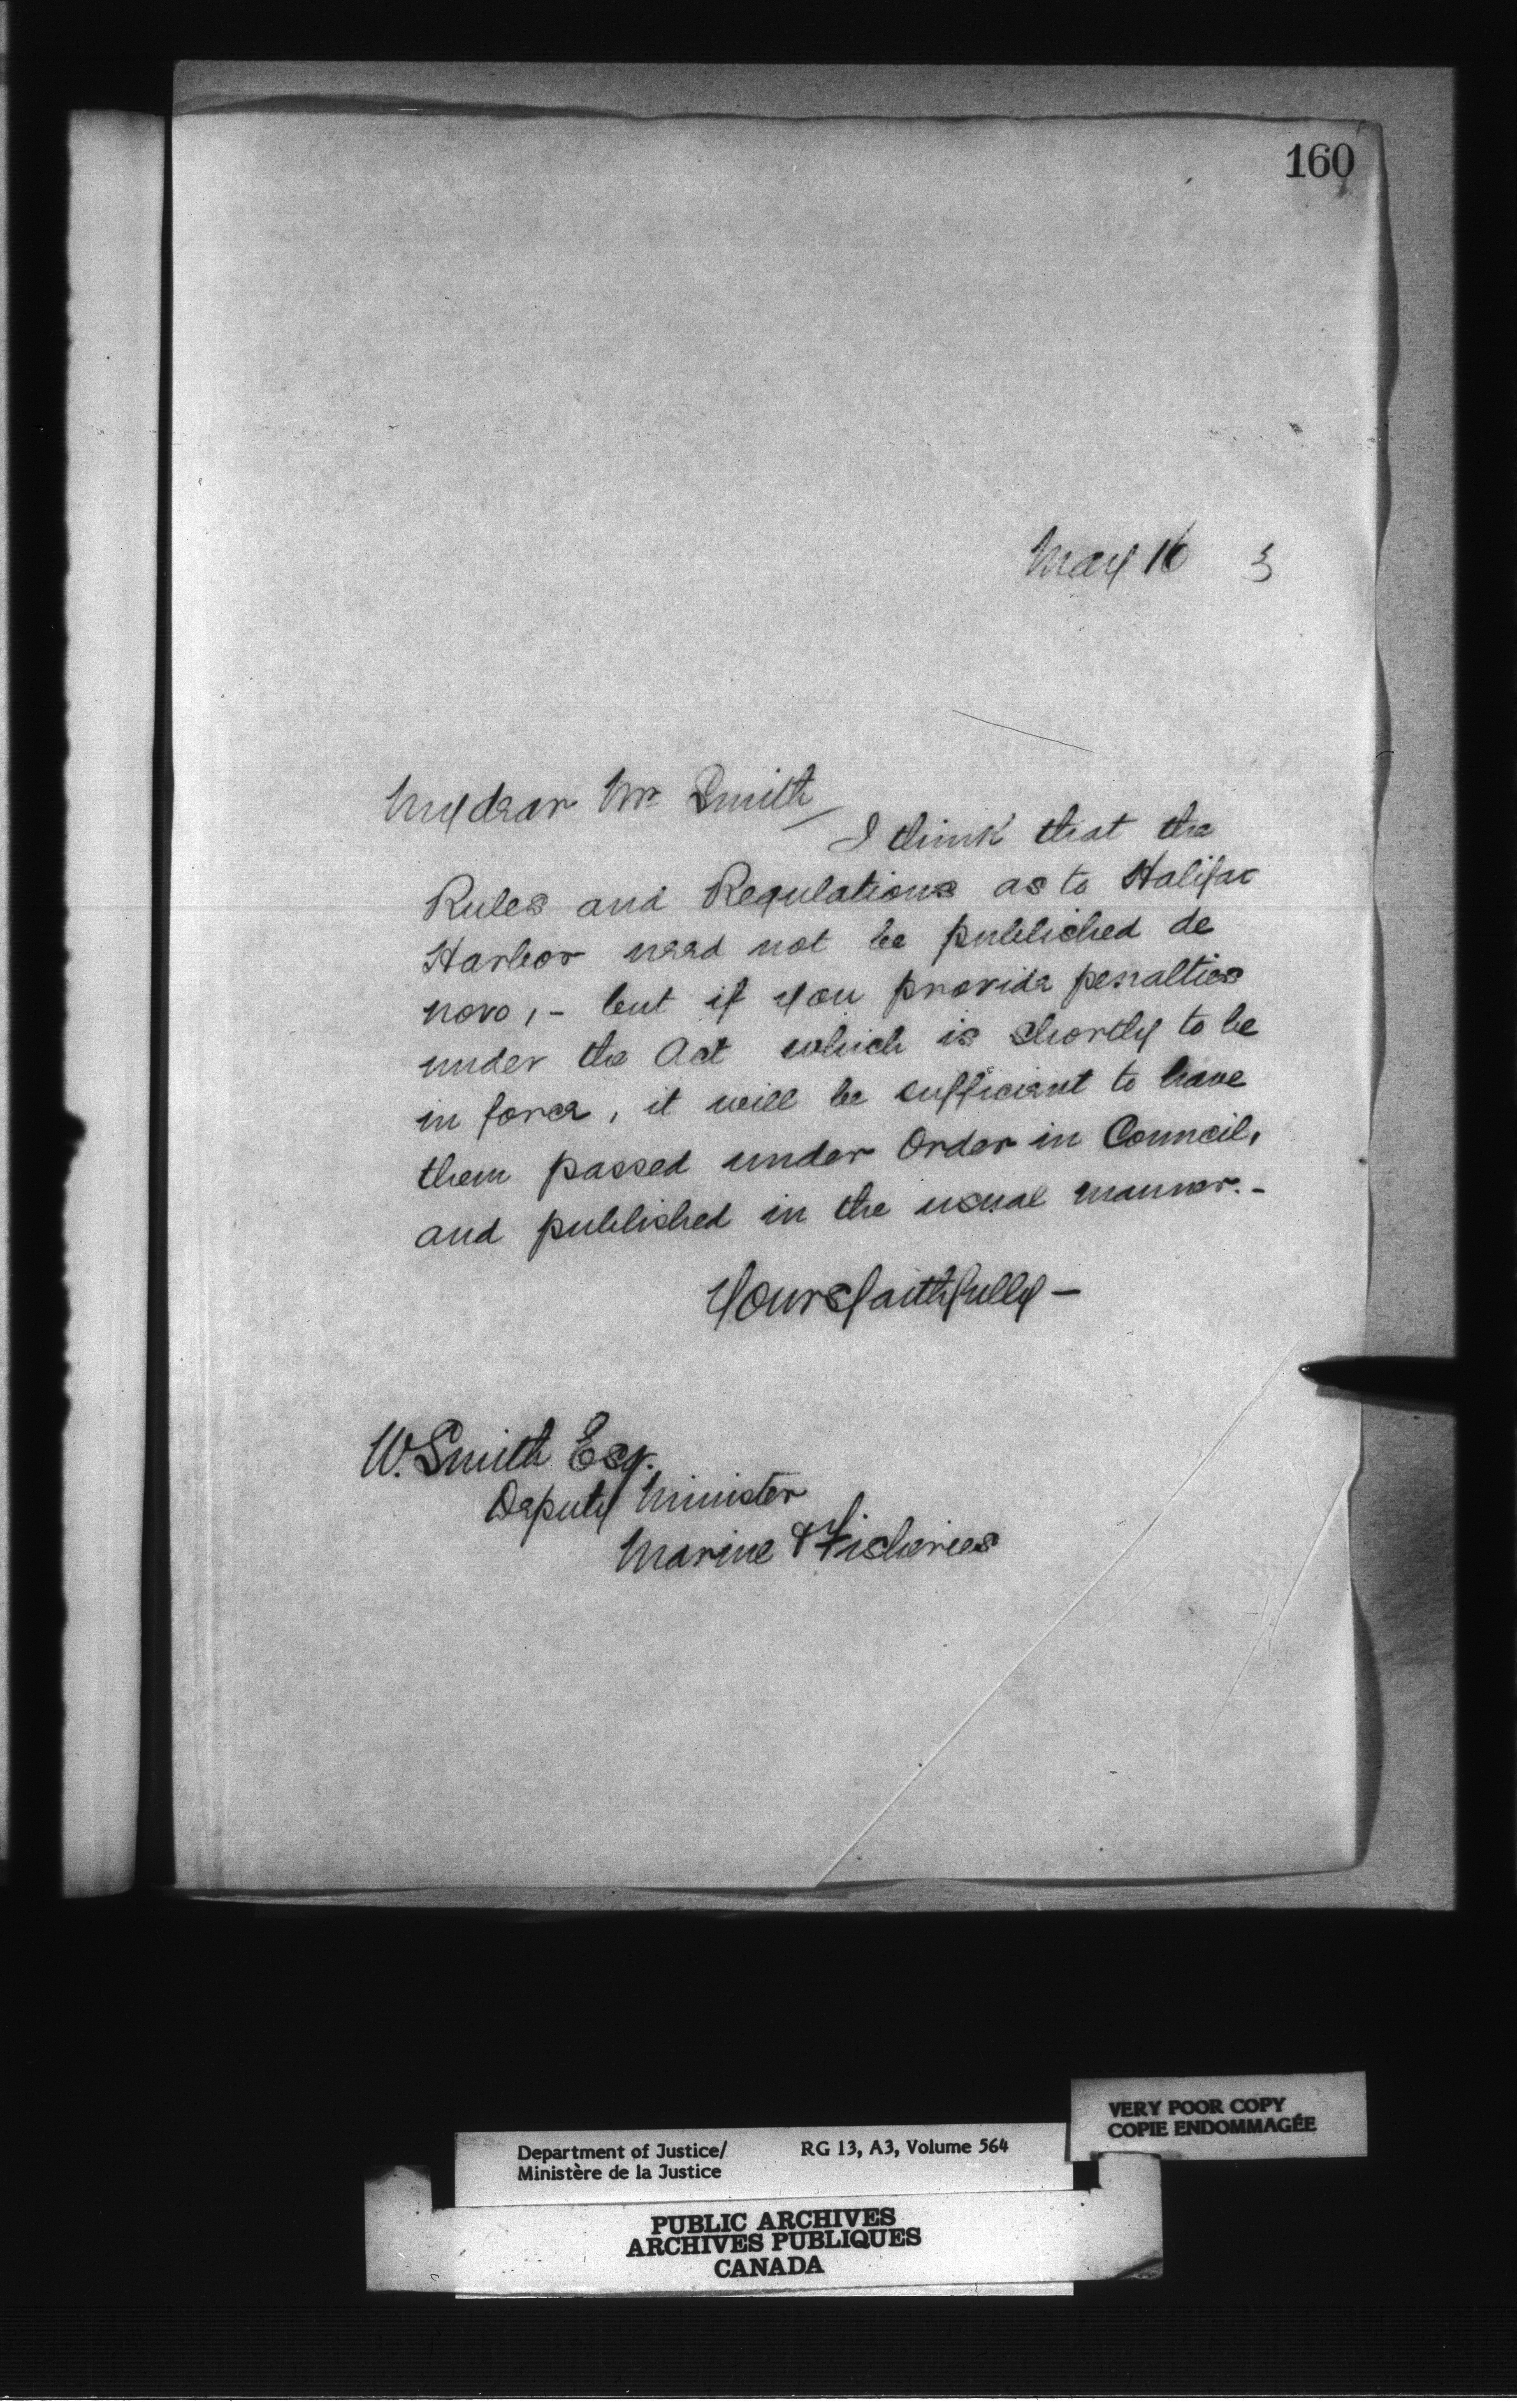 160
May 16 3
My dear Mr Smith
I think that the
Rules and Regulations as to Halifax
Harbor need not be published de
novo, - but if you provide penalties
under the Act which is shortly to be
in force, it will be sufficient to have
them passed under Order in Council,
and published in the usual manner. -
Yours faithfully -
W. Smith Esq.
Deputy Minister
Marine & Fisheries
VERY POOR COPY
COPIE ENDOMMAGÉE
Department of Justice/ RG 13, A3, Volume 564
Ministère de la Justice
PUBLIC ARCHIVES
ARCHIVES PUBLIQUES
CANADA